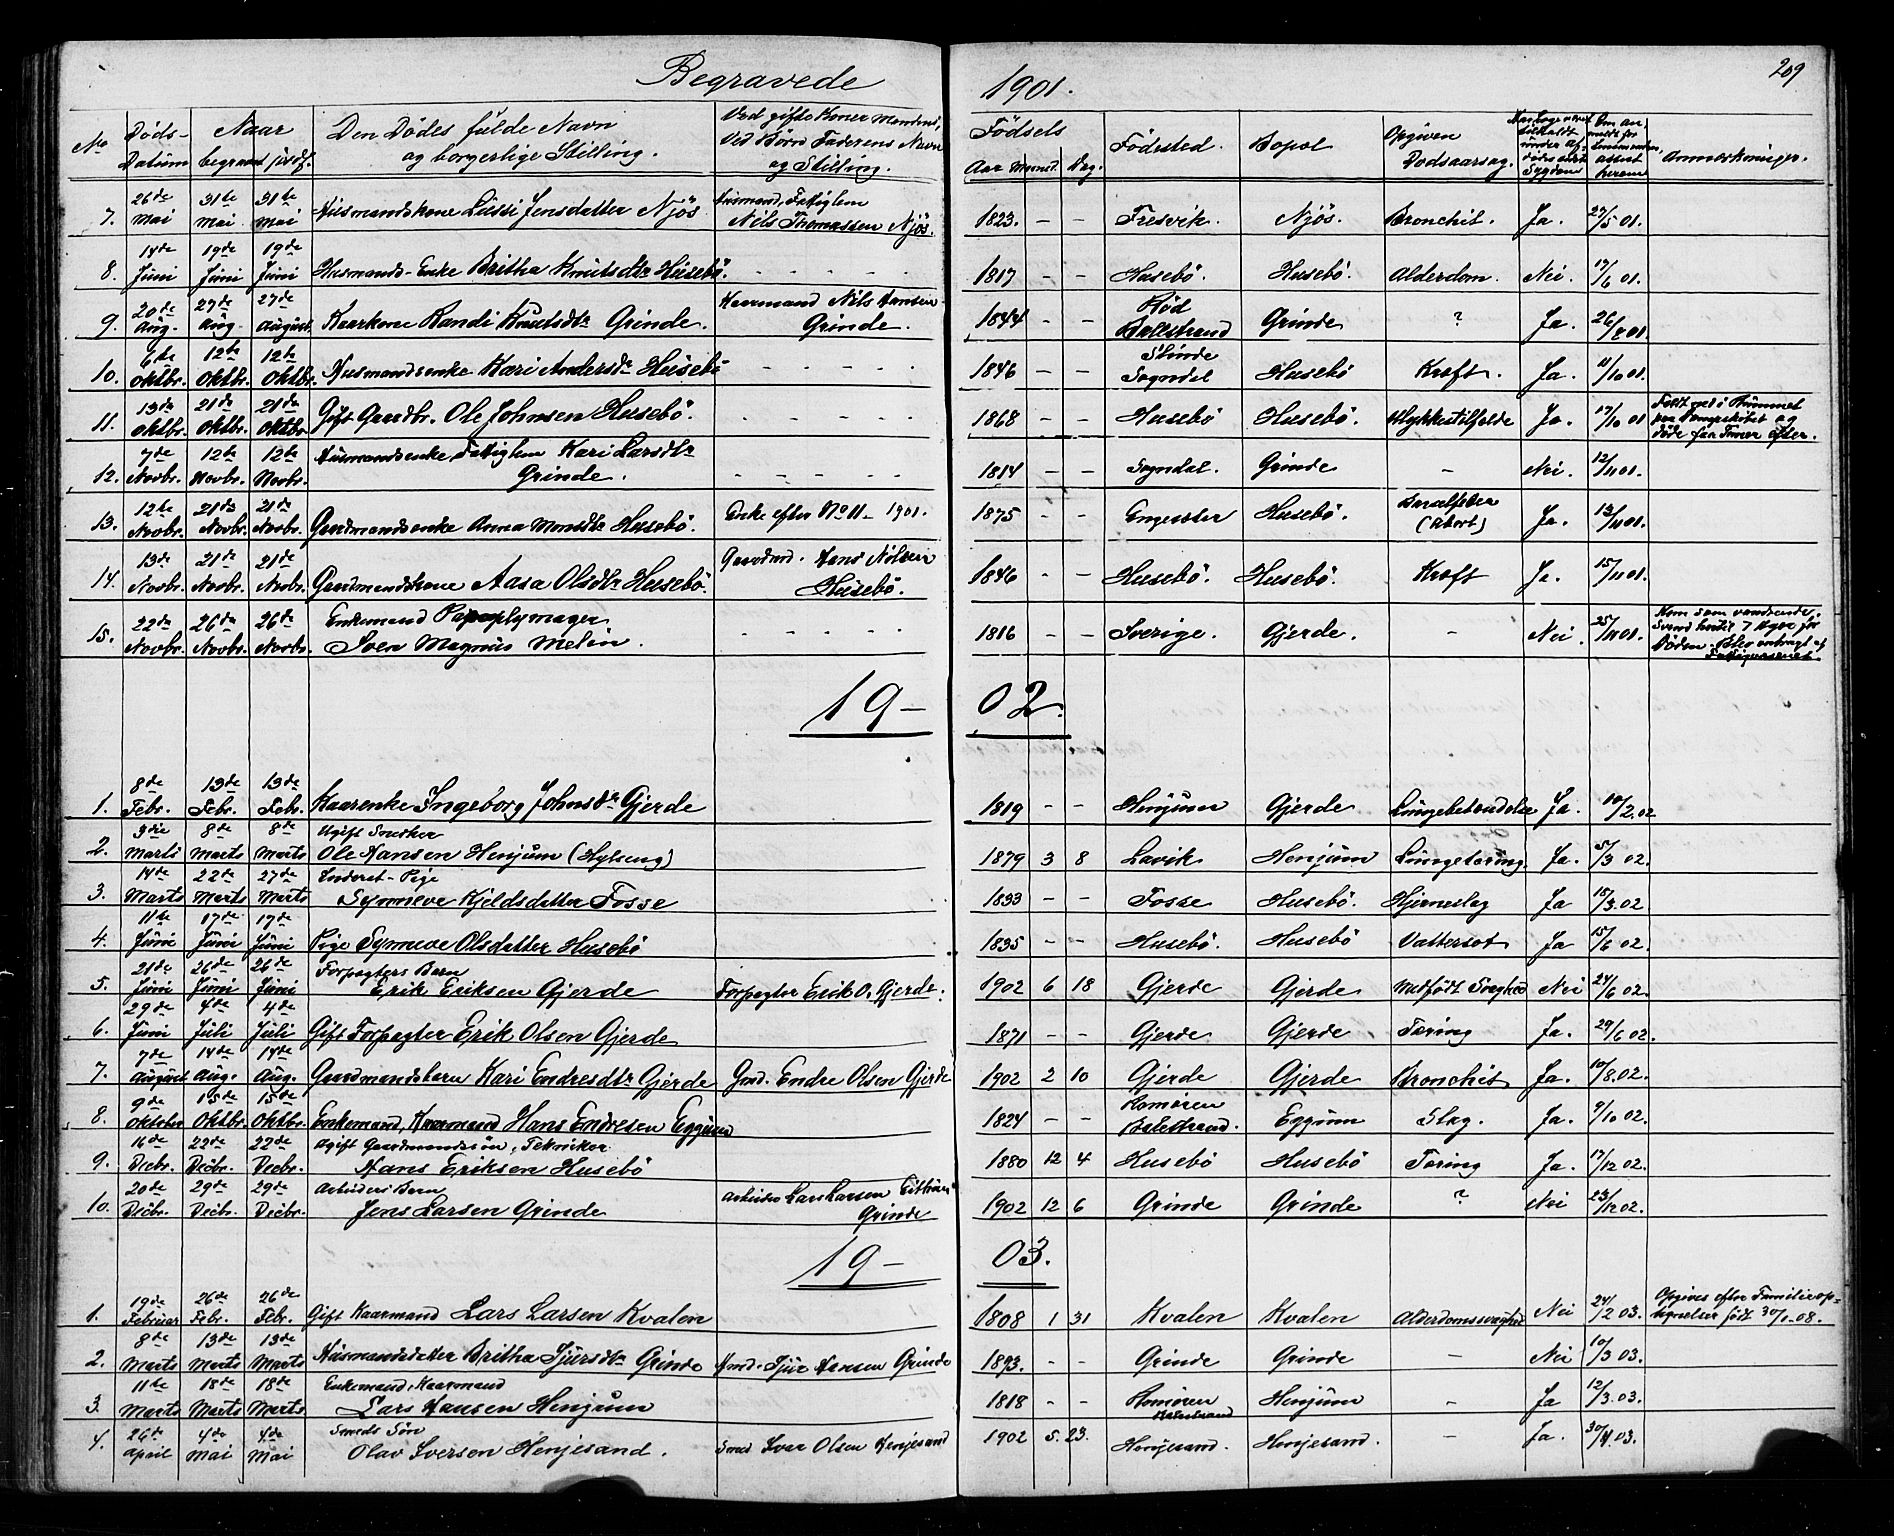 Begravede
1901.
209
No
Døds-
Datum
Naar
begravet
jordf.
Den Dødes fulde Navn
og borgerlige Stilling.
Ved gifte Koner Mandens,
Ved Børn Faderens Navn
og Stilling.
Fødsels
Aar Maaned. Dag.
Fødested.
Bopel
Opgiven
Dødsaarsag.
Anmærkninger.
7. 26de Mai 31te Mai 31te Mai Husmandskone Lussi Jensdatter Njøs Husmand, Fattiglem Nils Thomassen Njøs. 1823. - - Fresvik. Njøs. Bronchit. Ja. 27/5 01.
8. 14de Juni 19de Juni 19de Juni Husmands-Enke Britha Knutsdtr Husebø. - - - - - 1817 - - Husebø. Husebø. Alderdom. Nei. 17/6 01.
9. 20de Aug. 27de Aug. 27de August. Kaarkone Randi Knutsdtr Grinde. Kaarmand Nils Hansen Grinde. 1844 - - Balestrand Grinde ? Ja. 26/8 01.
10. 6te Oktbr. 12te Oktbr. 12te Oktbr. Husmandsenke Kari Andersdtr Husebø - - - - - 1846 - - Stinde Sogndal Husebø Kræft. Ja. 11/10 01.
11. 13de Oktbr. 21de Oktbr. 21de Oktbr. Gift Gaardbr. Ole Johnsen Husebø. - - - - - 1868 - - Husebø Husebø. Ulykkestilfælde Ja. 17/10 01 døde faa Timer efter.
12. 7de Novbr. 12te Novbr. 12te Novbr. Husmandsenke, Fattiglem Kari Larsdtr Grinde. - - - - - 1814 - - Sogndal. Grinde - Nei. 12/11 01.
13. 12te Novbr. 21de Novbr. 21de Novbr. Gaardmandsenke Anna Monsdtr Husebø. Enke efter No 11 - 1901. 1875 - - Engesæter Husebø. Barselfeber (Abort) Ja. 13/11 01.
14. 13de Novbr. 21de Novbr. 21de Novbr. Gaardmandskone Aasa Olsdtr Husebø. Gaardmd. Hans Nilsen Husebø. 1846 - - Husebø. Husebø. Kræft Ja. 15/11 01.
15. 22de Novbr. 26de Novbr. 26de Novbr. Enkemand Sven Magnus Melin. - - - - - 1816 - - Sverige. Gjerde. - Nei. 25/11 01. Kom som vandrende Svend hertil 7 Uger før Døden. Blev antragt af Fattigvæsenet
19- 02.
1. 8de Febr. 13de Febr. 13de Febr. Kaarenke Ingeborg Johnsdtr Gjerde 1819 - - Henjum Gjerde Lungebetændelse Ja. 10/2. 02
2. 3die Marts 8de Marts 8de Marts Ugift Snedker Ole Hansen Henjum (Hylseng) 1879 3 8 Lavik Henjum Lungetæring. Ja. 5/3 02.
3. 14de Marts 22de Marts 27de Marts Inderst-Pige Synneve Kjeldsdatter Fosse 1833 - - Fosse Husebø. Hjerneslag Ja 15/3. 02.
4. 11te Juni 17de Juni 17de Juni Pige Synneve Olsdatter Husebø 1835 - - Husebø. Husebø Vattersot Ja 15/6 02.
5. 21de Juni 26de Juni 26de Juni Forpagters Barn Erik Eriksen Gjerde Forpagter Erik O. Gjerde. 1902 6 18 Gjerde Gjerde Medfødt Svaghed Nei 24/6 02.
6. 29de Juni 4de Juli 4de Juli Gift Forpagter Erik Olsen Gjerde 1871 - - Gjerde Gjerde Tæring Ja. 29/6 02.
7. 7de August 14de Aug. 14de Aug. Gaardmandsbarn Kari Endresdtr Gjerde Gmd. Endre Olsen Gjerde 1902 2 10 Gjerde Gjerde Bronchit Ja. 10/8. 02.
8. 9de Oktober 15de Oktbr. 15de Oktbr. Enkemand, Kaarmand Hans Endresen Eggum 1824 - - Romøren Balestrand. Eggum Slag. Ja. 9/10 02.
9. 16de Decbr. 22de Decbr. 22de Decbr. Ugift Gaardmandssøn, Tekniker Hans Eriksen Husebø 1880 12 4 Husebø Husebø Tæring Ja. 17/12 02.
10. 20de Decbr. 29de Decbr. 29de Decbr. Arbeiders Barn Jens Larsen Grinde Arbeider Lars Larsen Grinde 1902 12 6 Grinde Grinde ? Nei 23/12 02.
19- 03.
1. 19de Februar 26de Febr. 26de Febr. Gift Kaarmand Lars Larsen Kvalen 1808 1 31 Kvalen Kvalen Alderdomssvaghed Nei 24/2 03. Opgives efter Familieoptegnelser født 30/1. 08.
2. 8de Marts 13de Marts 13de Marts Husmandsdatter Britha Tjursdtr Grinde Hmd. Tjur Hansen Grinde 1893. - - Grinde Grinde - Nei 10/3 03.
3. 11te Marts 18de Marts 18de Marts Enkemand, Kaarmand Lars Hansen Henjum 1818 - - Romøren Balestrand Henjum - Ja 12/3. 03.
4. 26de April 4de Mai 4de Mai Smeds Søn Olav Iversen Henjesand. Smed Ivar Olsen Henjesand 1902 5. 23. Henjesand. Henjesand. - Ja. 30/4. 03.